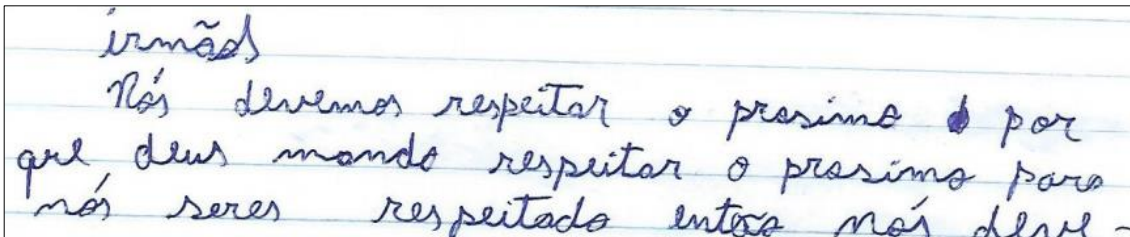 irmãos
Nós devemos respeitar o prosimo por
que deus mando respeitar o prosimo para
nós seres respeitado então nós deve-